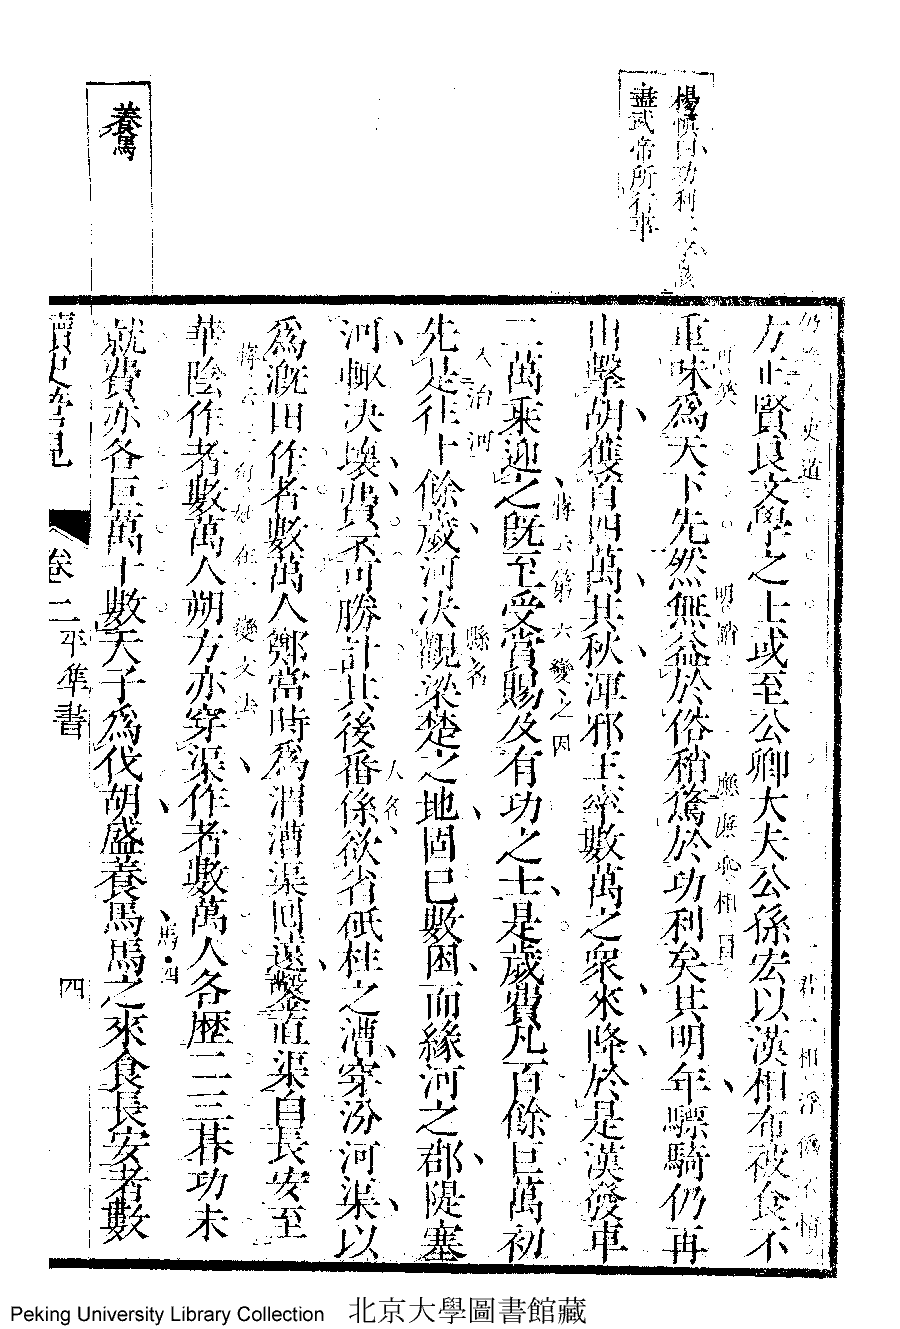 楊慎曰功利二字
盡武帝所行事
方正賢良文學之士或至公卿大夫公孫宏以漢相布被食不
重味爲天下先然無益於俗稍騖於功利矣其明年驃騎仍再
明諧
應處丞相一因
出擊胡獲首四萬其秋渾邪王率數萬之衆來降於是漢發車
二萬乘迎之既至受賞賜及有功之士是歲費凡百餘巨萬初
蔣云第六變之因
先是往十餘歲河决觀梁楚之地固已數困而緣河之郡隄塞
入治河
縣名
河輒决壞費不可勝計其後番係欲省砥柱之漕穿汾河渠以
人名
爲溉田作者數萬人鄭當時爲渭漕渠回遠鑿直渠自長安至
華陰作者數萬人朔方亦穿渠作者數萬人各歷二三朞功未
變文法
就費亦各巨萬十數天子爲伐胡盛養馬馬之來食長安者數
馬四
養馬
讀史管見
卷二
平準書
四
Peking University Library Collection 北京大學圖書館藏